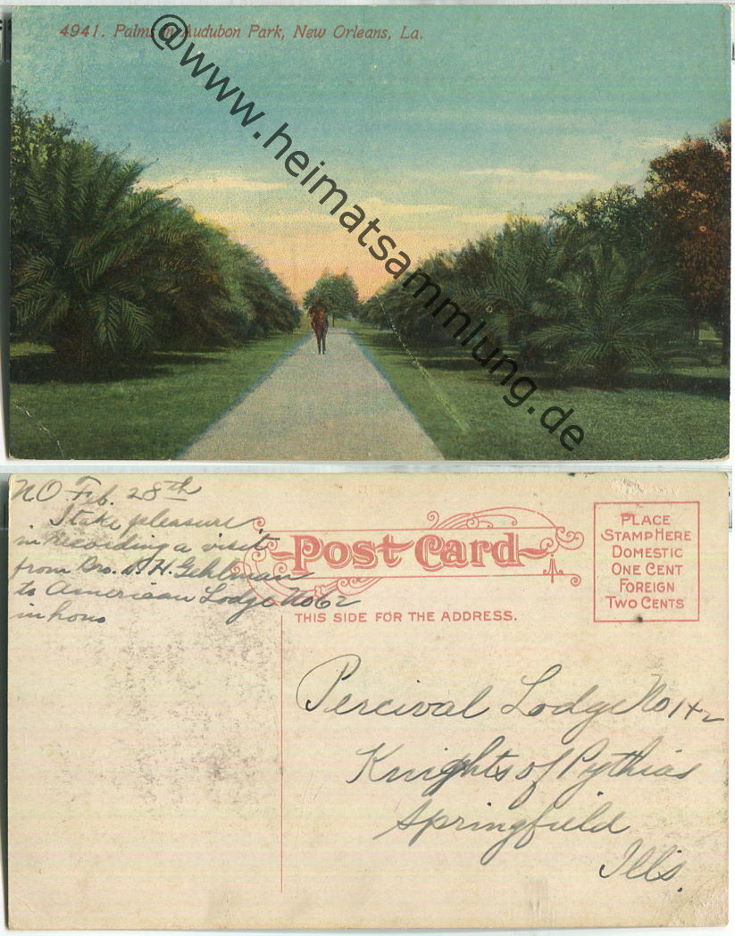 4941. Palms in Audubon Park, New Orleans, La.
@www.heimatsammlung.de
NO Feb. 28th
I take pleasure
in recording a visit
from Bro. H. Gehlman
to American Lodge No 62
Post Card
THIS SIDE FOR THE ADDRESS.
PLACE
STAMP HERE
DOMESTIC
ONE CENT
FOREIGN
TWO CENTS
Percival Lodge No 142
Knights of Pythias
Springfield
Ills.